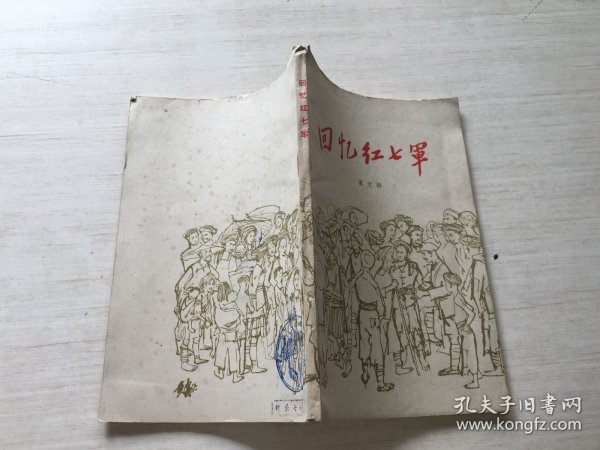 回忆红七軍
莫文骅
回忆红七军
孔夫子旧书网
www.kongfz.com